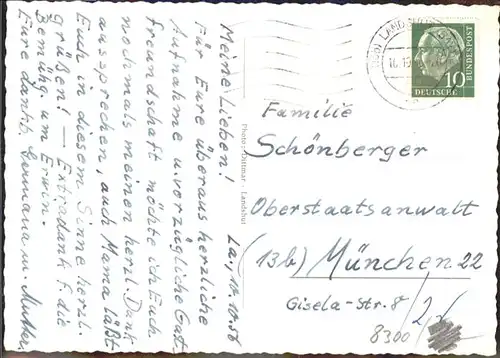 La., 10.10.56
Meine Lieben!
Für Eure überaus herzliche
Aufnahme u. vorzügliche Gast-
freundschaft möchte ich Euch
nochmals meinen herzl. Dank
aussprechen, auch Mama läßt
Euch in diesem Sinne herzl.
grüßen! — Extradank f. die
Bemühg. um Erwin.
Eure dankb. Germana m. Mutter
Photo: Dittmar - Landshut
LANDSHUT
10
DEUTSCHE
BUNDESPOST
Familie
Schönberger
Oberstaatsanwalt
(13b) München 22
Gisela-Str. 8
8300